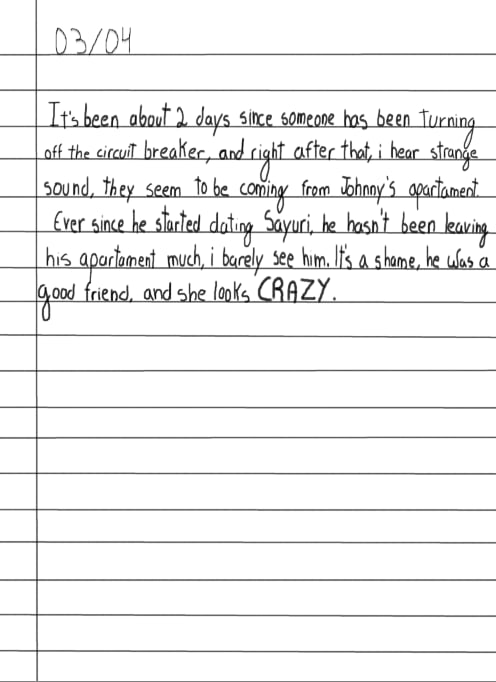 03/04
It's been about 2 days since someone has been turning
off the circuit breaker, and right after that, i hear strange
sound, they seem to be coming from Johnny's apartament.
Ever since he started dating Sayuri, he hasn't been leaving
his apartament much, i barely see him. It's a shame, he was a
good friend, and she looks CRAZY.